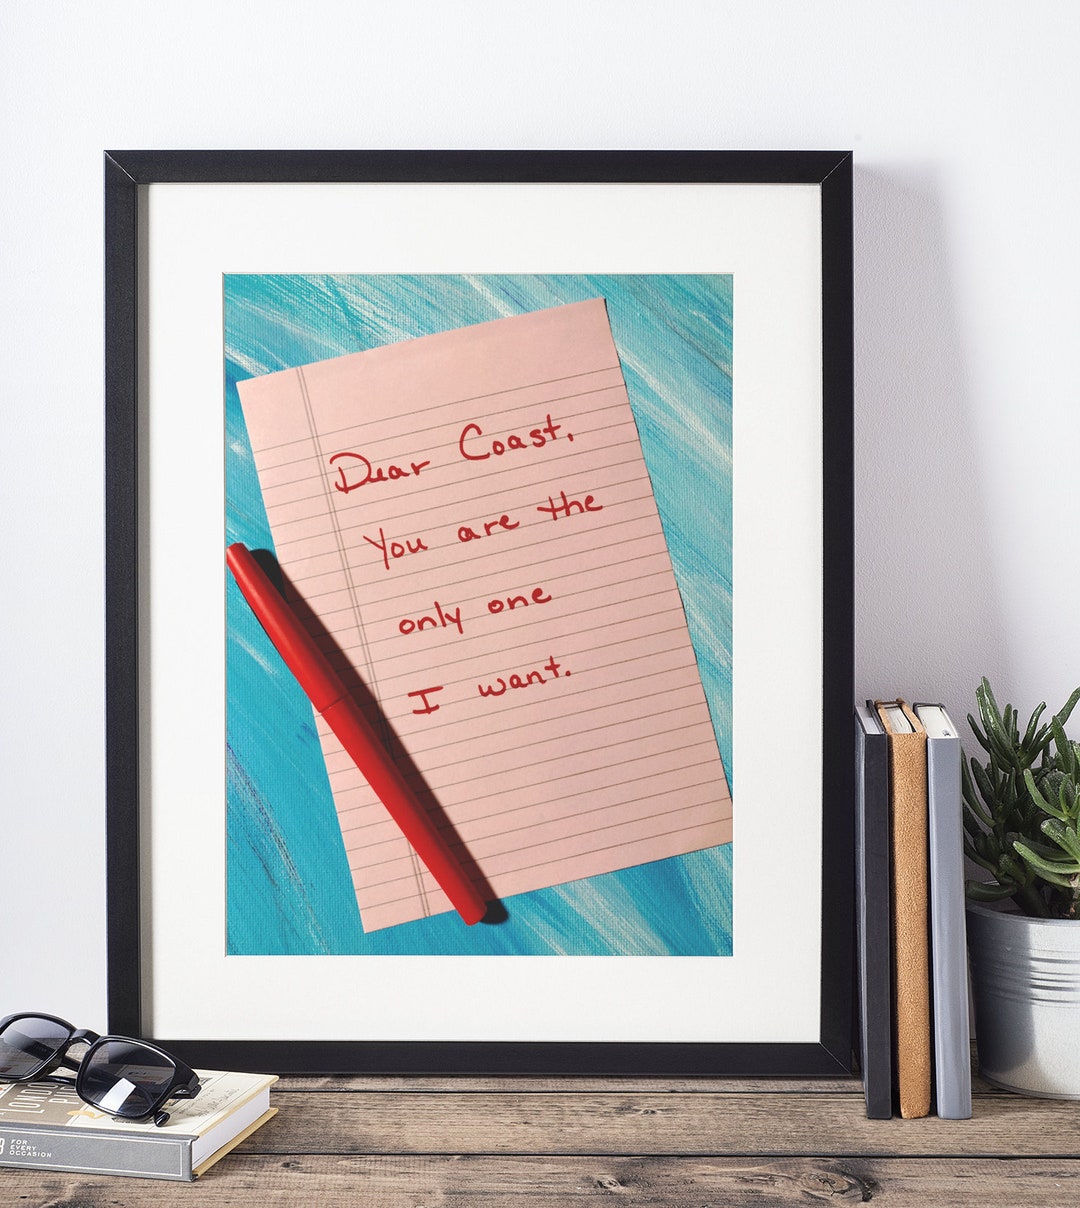 Dear Coast,
You are the
only one
I want.
FOR
EVERY
OCCASION